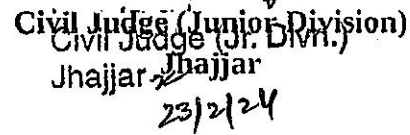 Civil Judge (Junior Division)
Civil Judge (Jr. Divn.)
Jhajjar
Jhajjar
23/2/24